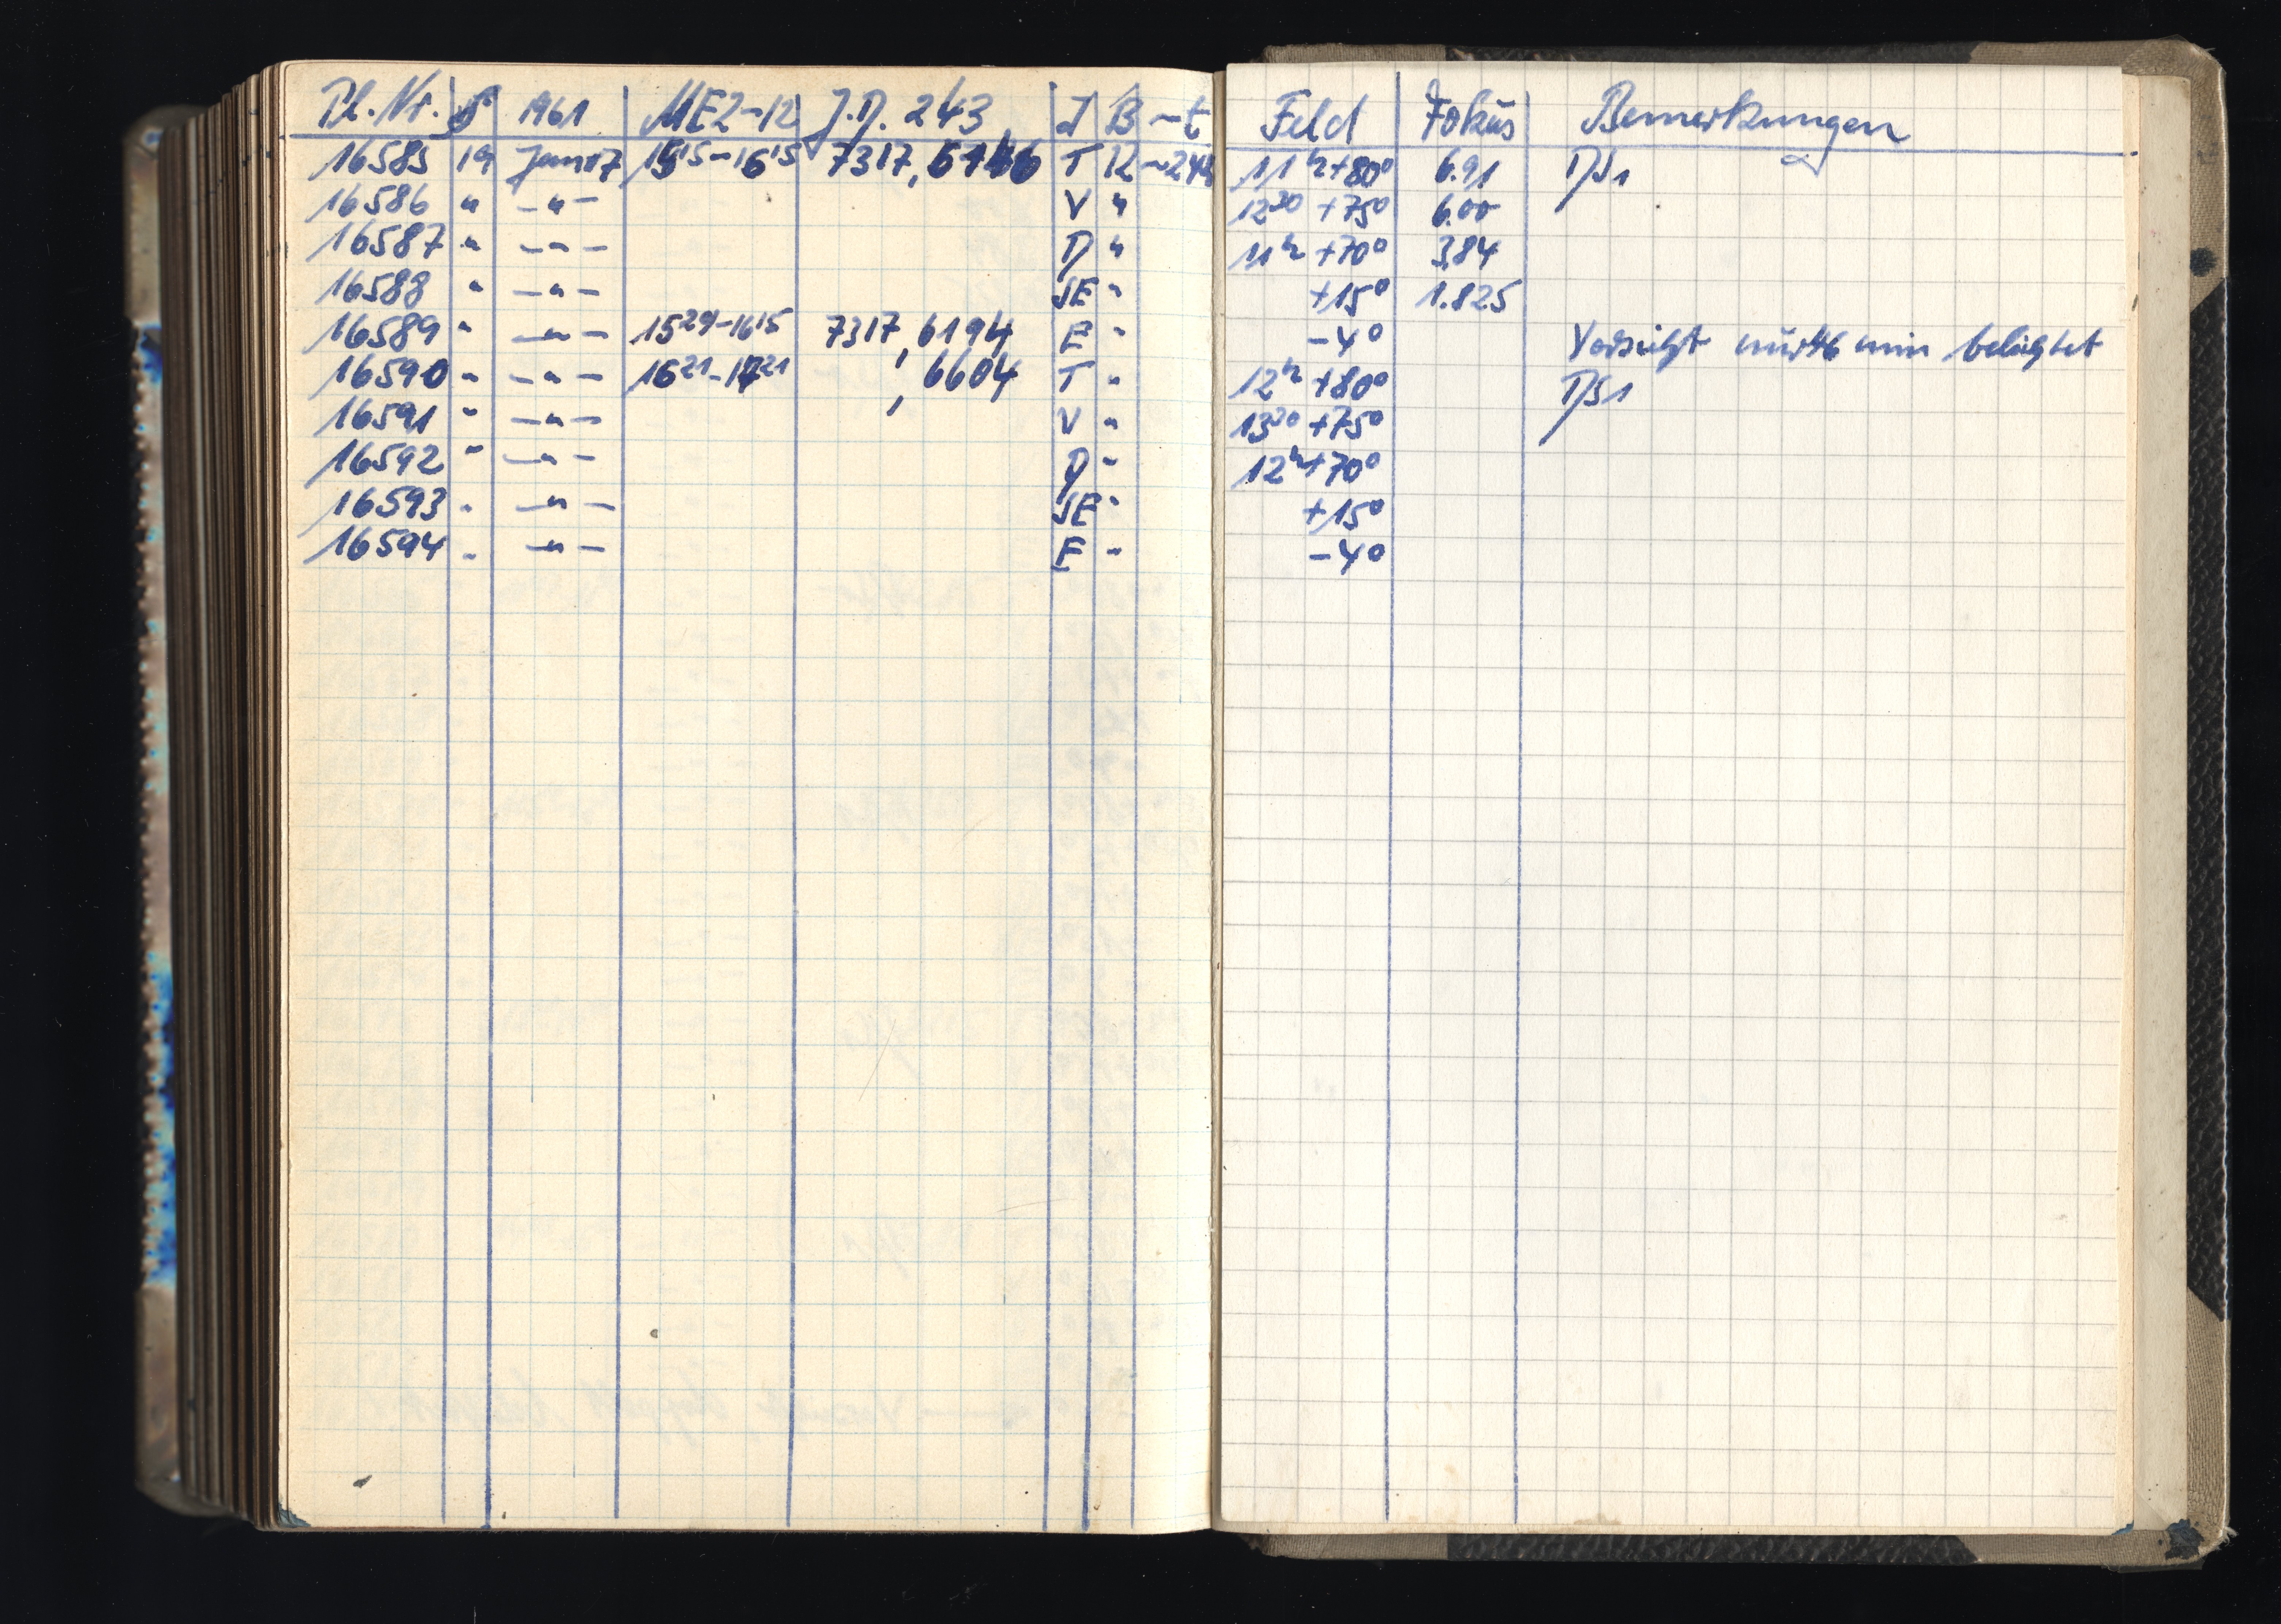 Pl. Nr. 1961 ME2-12 J.D. 243 I B ~t Feld Fokus Bemerkungen
16585 19 Jan 17 15 15 - 16 15 7317, T 12 11h +80° 6.91 DS1
16586 " -"- V " 12 30 +75° 6.00
16587 " -"- D " 11h +70° 3.84
16588 " -"- SE " +15° 1.825
16589 " -"- 15 29 - 16 15 7317,6194 E " -4° Vorsicht nur 46 min belichtet
16590 " -"- 16 21 - 17 21 , 6604 T " 12h +80° DS1
16591 " -"- , V " 13 30 +75°
16592 " -"- D " 12h +70°
16593 " -"- SE " +15°
16594 " -"- E " -4°